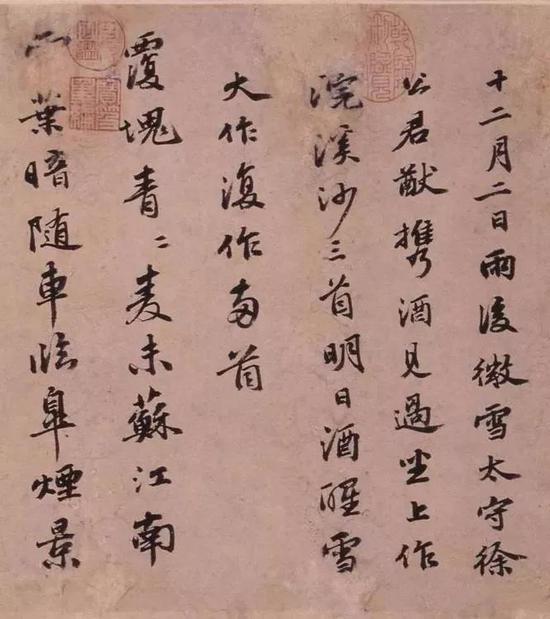 十二月二日雨後微雪太守徐
公君猷携酒見過坐上作
浣溪沙三首明日酒醒雪
大作復作兩首
覆塊青〻麥未蘇江南
雲葉暗隨車臨皐煙景